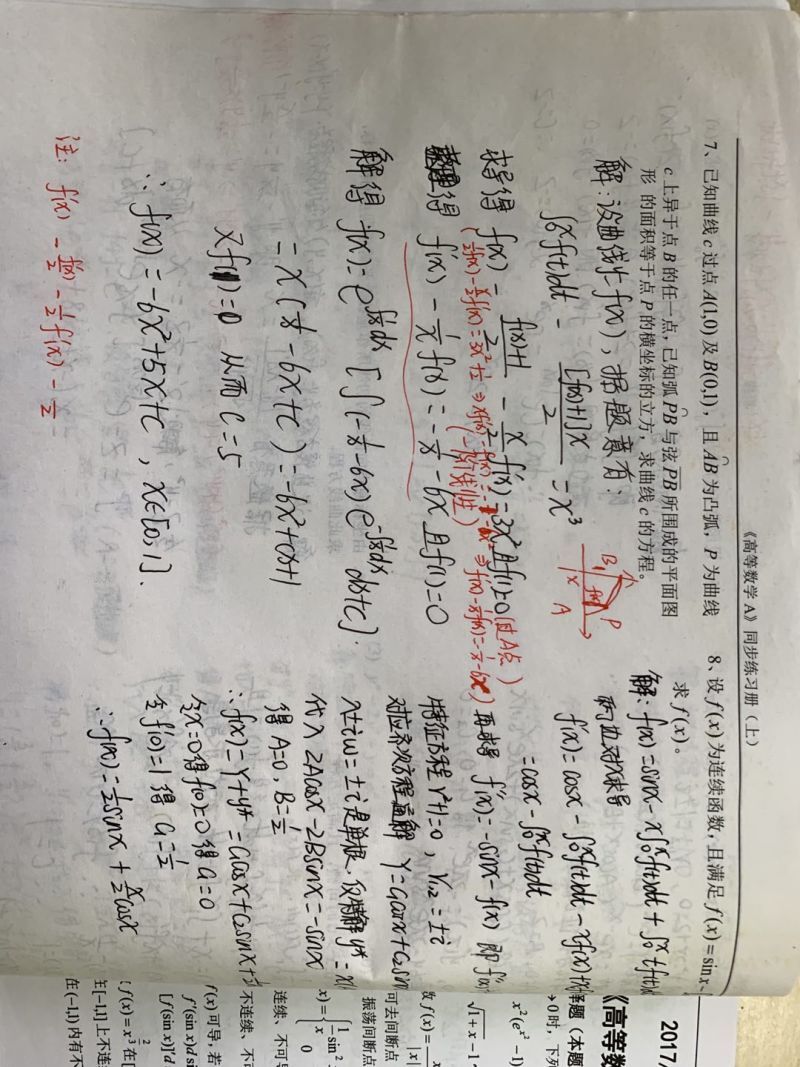 《高等数学 A》同步练习册（上）
7、已知曲线 c 过点 A(1,0) 及 B(0,1)，且 AB 为凸弧，P 为曲线
c 上异于点 B 的任一点，已知弧 PB 与弦 PB 所围成的平面图
形 的面积等于点 P 的横坐标的立方，求曲线 c 的方程。
解：设曲线为 f(x)，据题意有：
∫₀ˣf(t)dt - [f(x)+1]x/2 = x³
B
P
A
x
求导得 f(x) - (f(x)+1)/2 - x/2 f'(x) = 3x² 且f(1)=0 (过A点)
(一阶线性)
整理得 f'(x) - 1/x f(x) = -1/x - 6x 且f(1)=0
解得 f(x) = e^∫1/x dx [∫(-1/x - 6x) e^-∫1/x dx dx+C].
= x(1/x - 6x + C) = -6x²+cx+1
又f(1)=0 从而 C=5
∴ f(x) = -6x²+5x+C, x∈[0,1].
注: f(x) - f(x)/2 - 1/2 f'(x) - 1/2
8、设 f(x) 为连续函数，且满足 f(x) = sin x -
求 f(x)。
解: f(x)=sinx - x∫₀ˣf(t)dt + ∫₀ˣtf(t)dt
两边对x求导
f'(x) = cosx - ∫₀ˣf(t)dt - xf(x)+x
= cosx - ∫₀ˣf(t)dt
再求导 f''(x) = -sinx - f(x) 即 f''(x)
特征方程 r²+1=0, r₁,₂=±i
对应齐次方程通解 Y=C₁cosx+C₂sin
λ±iω=±i是单根, 设特解 y*=x(
代入 2Acosx - 2Bsinx = -sinx
得 A=0, B=1/2
∴ f(x) = Y+y* = C₁cosx+C₂sinx+
令x=0得 f(0)=0 得 C₁=0
令 f'(0)=1 得 C₂=1/2
∴ f(x) = 1/2 sinx + x/2 cosx
2017/
《高等数
题（本题
→0 时，下列
x²(e^{x²} - 1)
√1+x - 1
数 f(x) = x/|x|
可去间断点
振荡间断点
x) = { 1/x sin²
0
连续、不可导
不连续、不可
f(x) 可导，若
f'(sin x)d si
[f(sin x)]'d
f(x) = x^{2/3} 在[
在[-1,1] 上不连
在(-1,1) 内有不